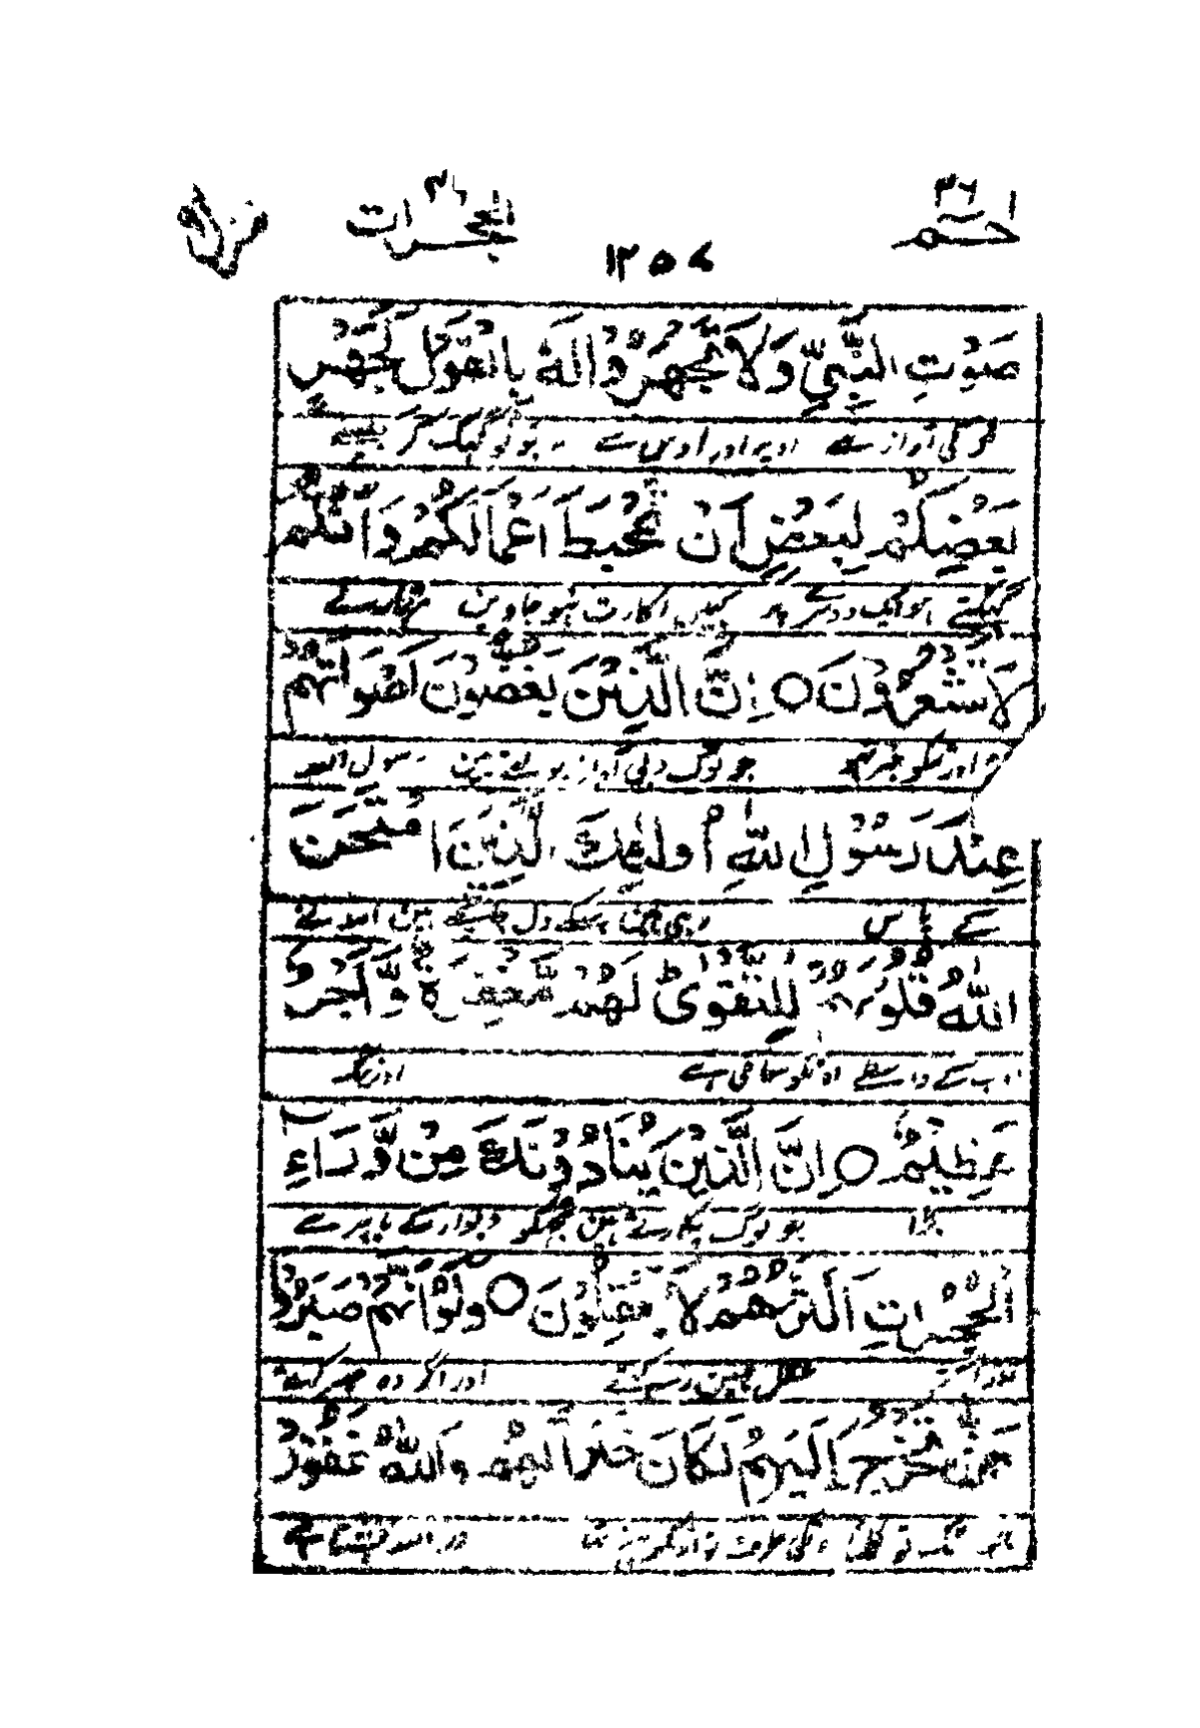 حٰم ٢٦
١٢٥٨
الحجرات ٤٩
صَوْتِ النَّبِيِّ وَلَا تَجْهَرُوْا لَهٗ بِالْقَوْلِ كَجَهْرِ
کی آواز سے اور اوس سے نہ بولو کرک کر جیسے
بَعْضِكُمْ لِبَعْضٍ اَنْ تَحْبَطَ اَعْمَالُكُمْ وَاَنْتُمْ
ہو ایک دوسرے پر کہیں اکارت نہو جاوین تمہارے
لَا تَشْعُرُوْنَ ○ اِنَّ الَّذِيْنَ يَغُضُّوْنَ اَصْوَاتَهُمْ
اور تمکو خبر نہو جو لوگ دبی آواز بولتے ہین رسول اللہ
عِنْدَ رَسُوْلِ اللّٰهِ اُولٰٓئِكَ الَّذِيْنَ امْتَحَنَ
کے پاس وہی ہین جنکے دل جانچے ہین اللہ نے
اللّٰهُ قُلُوْبَهُمْ لِلتَّقْوٰى لَهُمْ مَّغْفِرَةٌ وَّاَجْرٌ
ادب کے واسطے اونکو معافی ہے اور نیگ
عَظِيْمٌ ○ اِنَّ الَّذِيْنَ يُنَادُوْنَكَ مِنْ وَّرَآءِ
بڑا جو لوگ پکارتے ہین تجھکو دیوار کے باہر سے
الْحُجُرٰتِ اَكْثَرُهُمْ لَا يَعْقِلُوْنَ ○ وَلَوْ اَنَّهُمْ صَبَرُوْا
عقل نہین رکہتے اور اگر وہ صبر کرتے
حَتّٰى تَخْرُجَ اِلَيْهِمْ لَكَانَ خَيْرًا لَّهُمْ وَاللّٰهُ غَفُوْرٌ
تو نکلتا اونکی طرف تو اونکو بہتر تھا اور اللہ بخشتا ہے